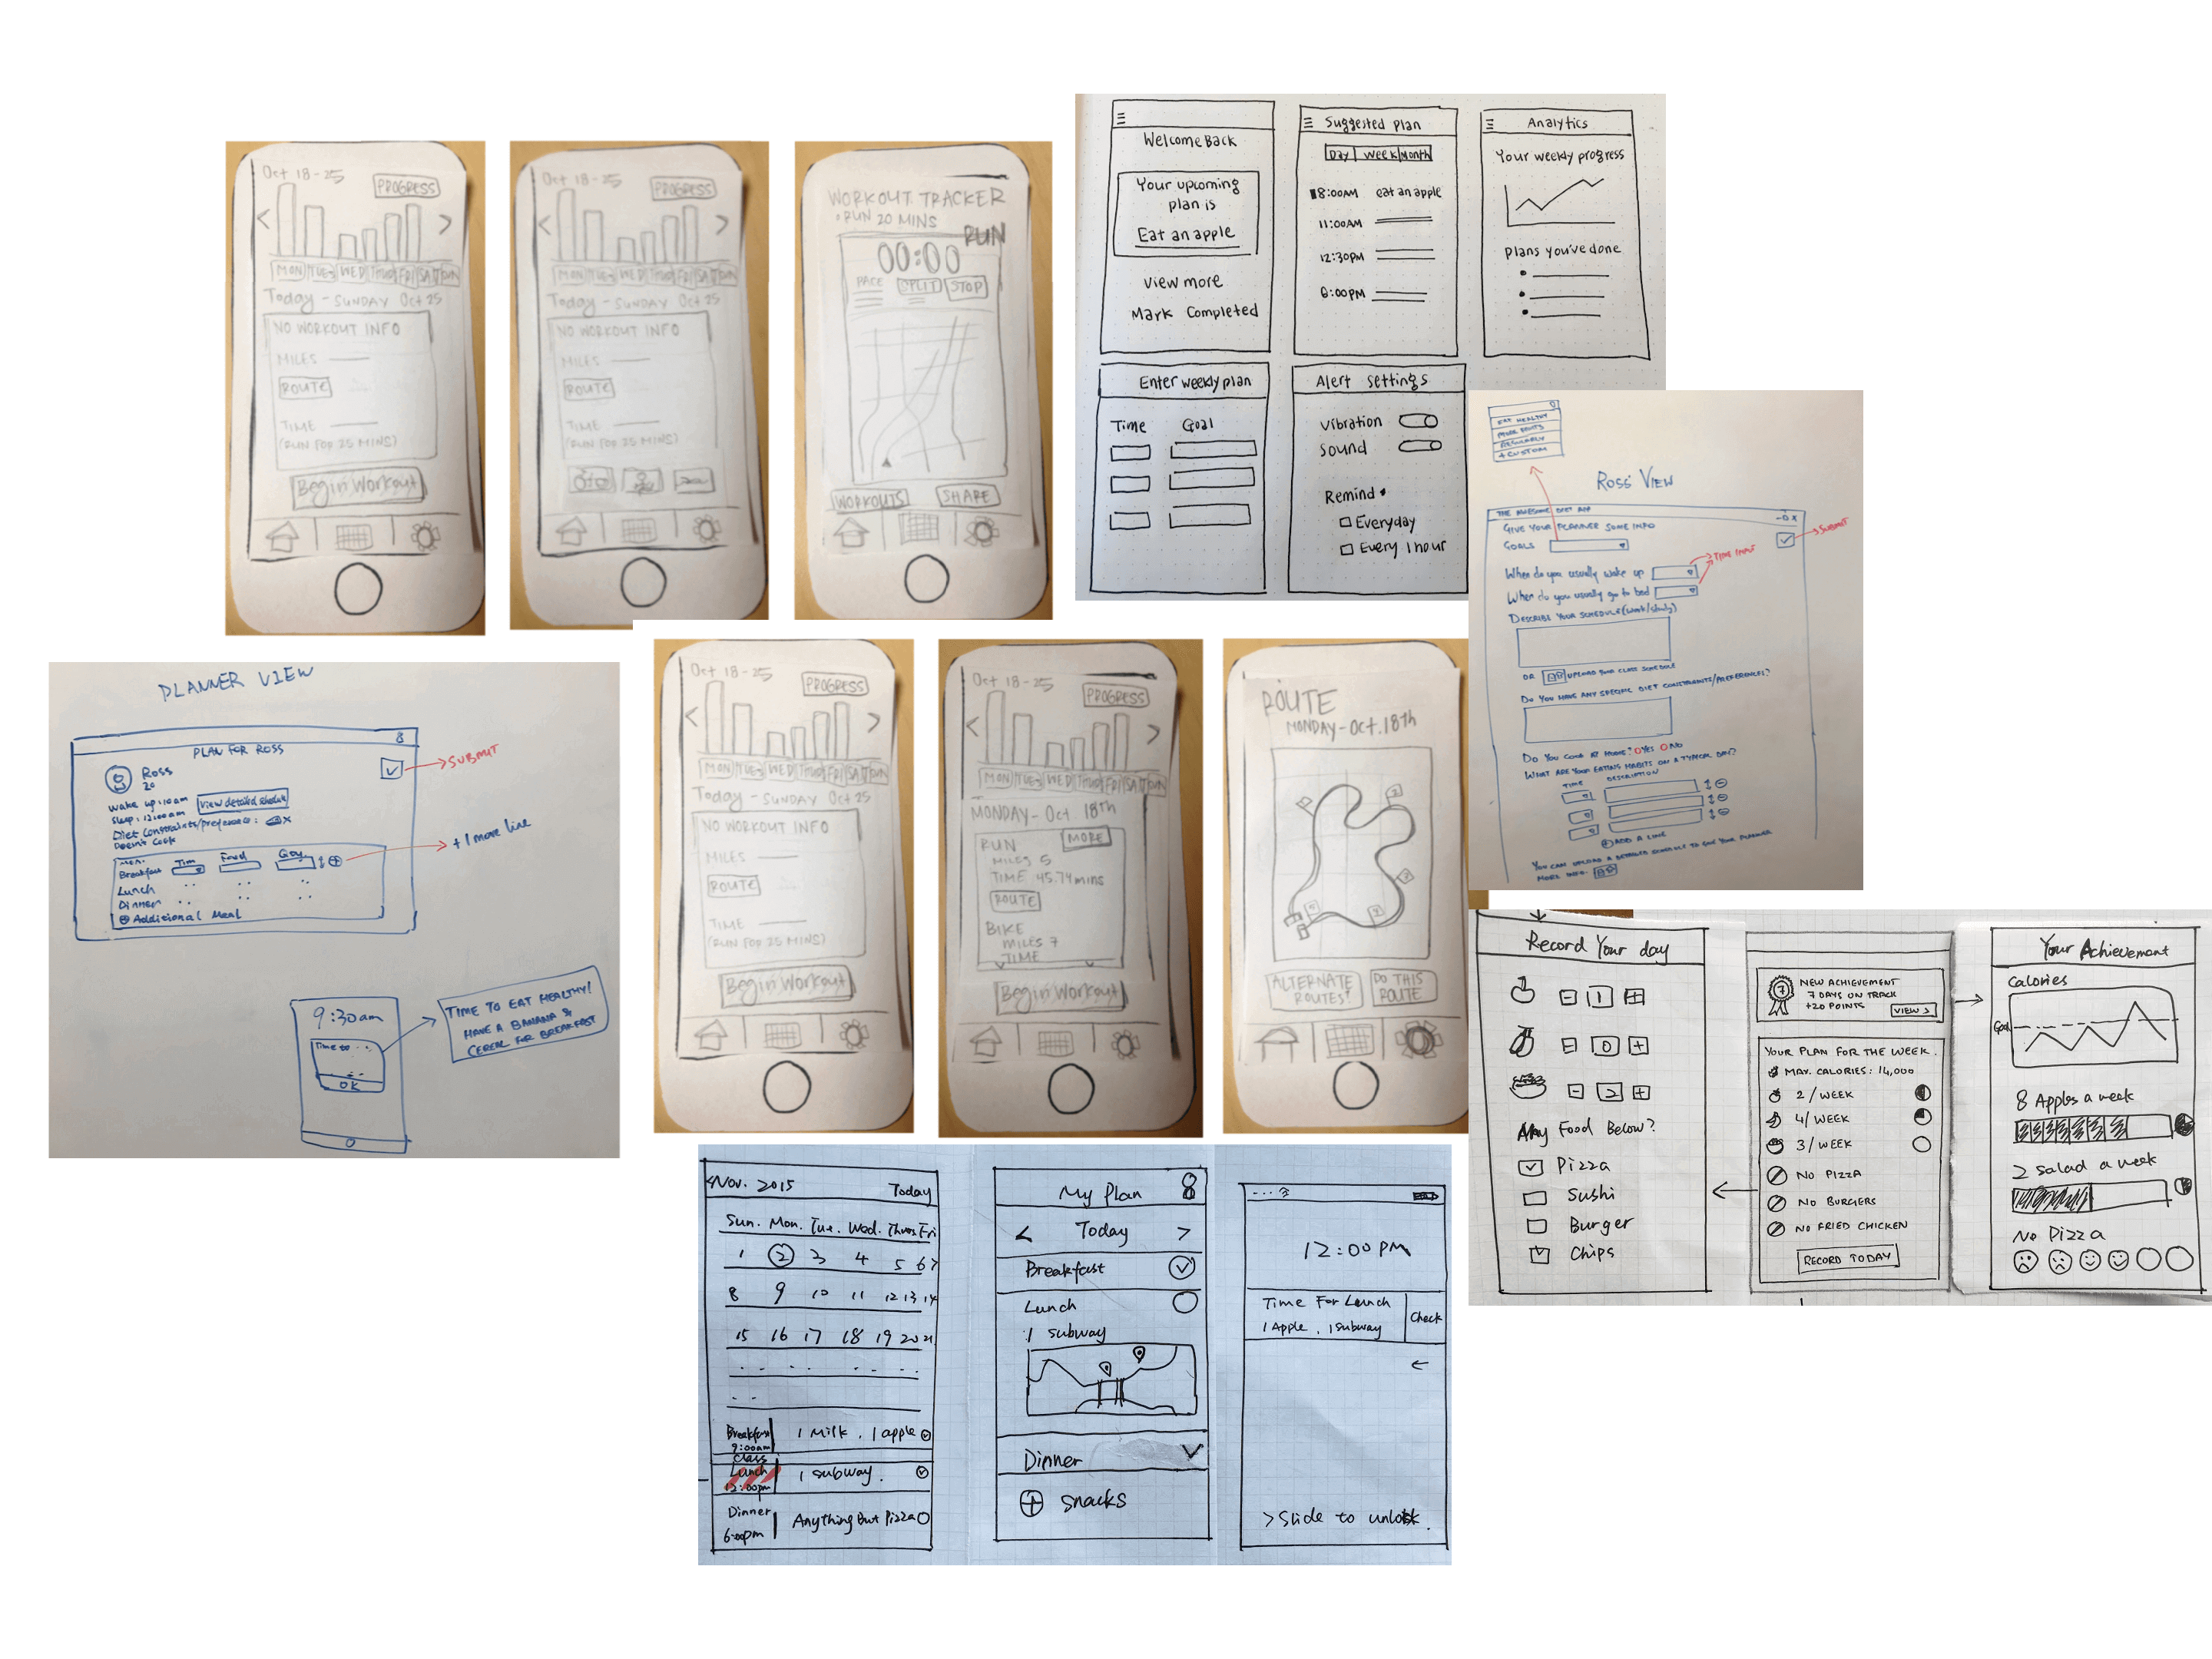 Oct 18-25
PROGRESS
< >
MON TUES WED THUR FRI SAT SUN
Today - SUNDAY Oct 25
NO WORKOUT INFO
MILES
ROUTE
TIME
(RUN FOR 25 MINS)
Begin Workout
Oct 18-25
PROGRESS
MON TUES WED THUR FRI SAT SUN
Today - SUNDAY Oct 25
NO WORKOUT INFO
MILES
ROUTE
TIME
(RUN FOR 25 MINS)
WORKOUT TRACKER
• RUN 20 MINS
RUN
00:00
PACE SPLIT STOP
WORKOUTS SHARE
Welcome Back
Your upcoming
plan is
Eat an apple
View more
Mark Completed
Suggested Plan
Day Week Month
8:00AM eat an apple
11:00AM
12:30PM
6:00PM
Analytics
Your weekly progress
Plans you've done
Enter weekly plan
Time Goal
Alert settings
Vibration
Sound
Remind
Everyday
Every 1 hour
EAT HEALTHY
MORE FRUITS
REGULARLY
+ CUSTOM
ROSS VIEW
THE AWESOME DIET APP
- X
GIVE YOUR PLANNER SOME INFO
GOALS
SUBMIT
TIME INPUT
When do you usually wake up
When do you usually go to bed
DESCRIBE YOUR SCHEDULE (work/study)
OR UPLOAD YOUR CLASS SCHEDULE
DO YOU HAVE ANY SPECIFIC DIET CONSTRAINTS/PREFERENCES?
DO YOU COOK AT HOME? YES NO
WHAT ARE YOUR EATING HABITS ON A TYPICAL DAY?
TIME DESCRIPTION
ADD A LINE
YOU CAN UPLOAD A DETAILED SCHEDULE TO GIVE YOUR PLANNER
MORE INFO
PLANNER VIEW
PLAN FOR ROSS
SUBMIT
Ross
20
wake up: 10am View detailed schedule
sleep: 12:00am
Diet Constraints/preference:
Doesn't Cook
+ 1 more line
Breakfast
Food
Lunch
Dinner
Additional Meal
9:30am
Time to
OK
TIME TO EAT HEALTHY!
HAVE A BANANA &
CEREAL FOR BREAKFAST
Oct 18-25
PROGRESS
< >
MON TUES WED THUR FRI SAT SUN
Today - SUNDAY Oct 25
NO WORKOUT INFO
MILES
ROUTE
TIME
(RUN FOR 25 MINS)
Begin Workout
Oct 18-25
PROGRESS
< >
MON TUES WED THUR FRI SAT SUN
MONDAY - Oct 18th
RUN MORE
MILES 5
TIME 45.74 mins
ROUTE
BIKE
MILES 7
TIME
Begin Workout
ROUTE
MONDAY - Oct. 18th
ALTERNATE
ROUTES!
DO THIS
ROUTE
Record Your day
- 1 +
- 0 +
- 2 +
Any Food Below?
Pizza
Sushi
Burger
Chips
7
NEW ACHIEVEMENT
7 DAYS ON TRACK
+20 POINTS
VIEW >
YOUR PLAN FOR THE WEEK.
MAX. CALORIES: 14,000
2 / WEEK
4 / WEEK
3 / WEEK
NO PIZZA
NO BURGERS
NO FRIED CHICKEN
RECORD TODAY
Your Achievement
Calories
Goal
8 Apples a week
2 Salad a week
No Pizza
4 Nov. 2015 Today
Sun. Mon. Tue. Wed. Thurs Fri
1 2 3 4 5 6 7
8 9 10 11 12 13 14
15 16 17 18 19 20 21
Breakfast 1 Milk, 1 apple
9:00am
class
Lunch 1 subway.
12:00pm
Dinner Anything But Pizza
6:00pm
My Plan
< Today >
Breakfast
Lunch
1 subway
Dinner
Snacks
12:00PM
Time For Lunch
1 Apple, 1 subway
Check
> Slide to unlock.